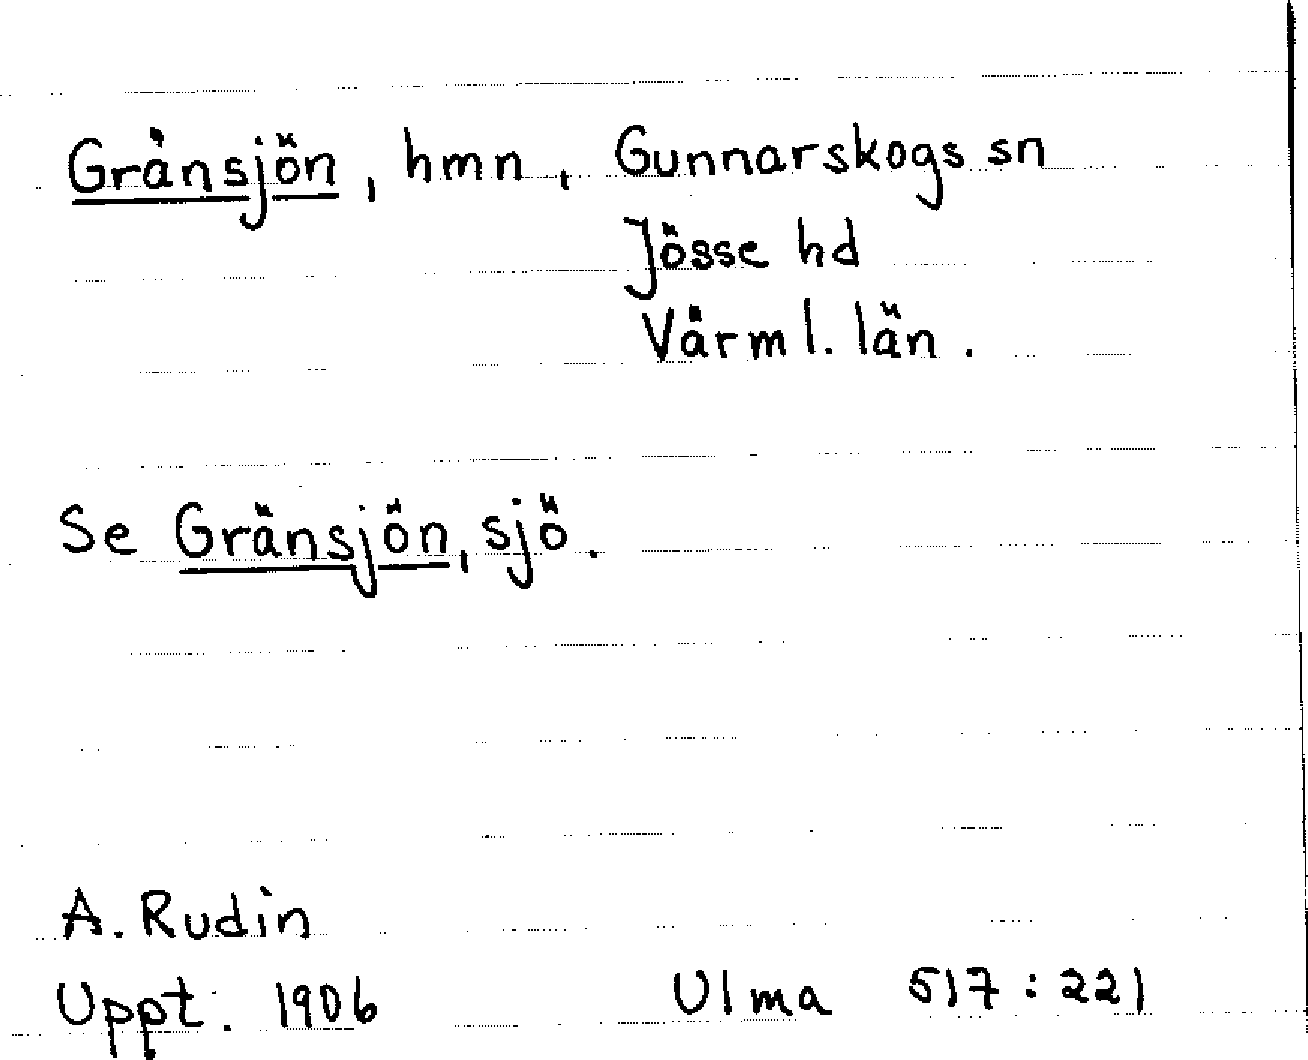 Gränsjön, hmn, Gunnarskogs sn
Jösse hd
Värml. län.
Se Gränsjön, sjö.
A. Rudin
Uppt. 1906 Ulma 517:221